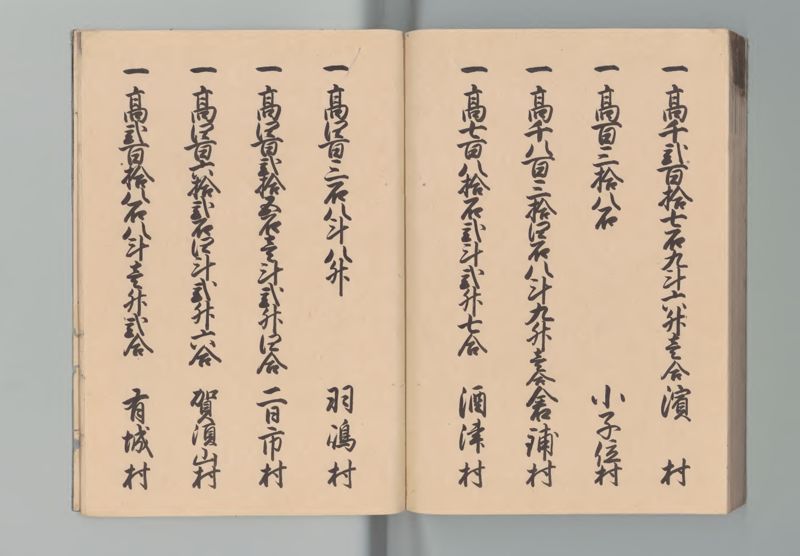 一 高千弐百拾七石九斗六升壱合 濱村
一 高百三拾八石 小子位村
一 高千八百三拾四石八斗九升壱合 倉鋪村
一 高七百八拾石弐斗弐升七合 酒津村
一 高四百三石八斗八升 羽嶋村
一 高四百弐拾五石壱斗弐升四合 二日市村
一 高四百六拾弐石四斗弐升六合 賀須山村
一 高弐百拾八石八斗壱升弐合 有城村